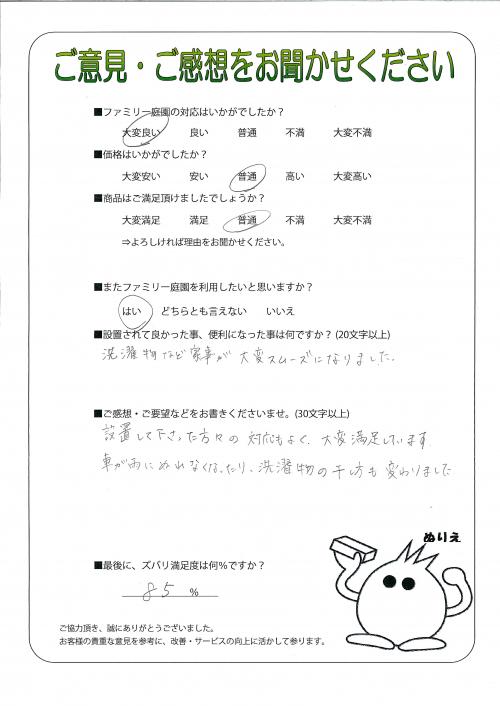 ご意見・ご感想をお聞かせください
■ファミリー庭園の対応はいかがでしたか？
大変良い 良い 普通 不満 大変不満
■価格はいかがでしたか？
大変安い 安い 普通 高い 大変高い
■商品はご満足頂けましたでしょうか？
大変満足 満足 普通 不満 大変不満
⇒よろしければ理由をお聞かせください。
■またファミリー庭園を利用したいと思いますか？
はい どちらとも言えない いいえ
■設置されて良かった事、便利になった事は何ですか？(20文字以上)
洗濯物など家事が大変スムーズになりました。
■ご感想・ご要望などをお書きくださいませ。(30文字以上)
設置して下さった方々の対応もよく、大変満足しています
車が雨にぬれなくなったり、洗濯物の干し方も変わりました
ぬりえ
■最後に、ズバリ満足度は何％ですか？
85 ％
ご協力頂き、誠にありがとうございました。
お客様の貴重な意見を参考に、改善・サービスの向上に活かして参ります。